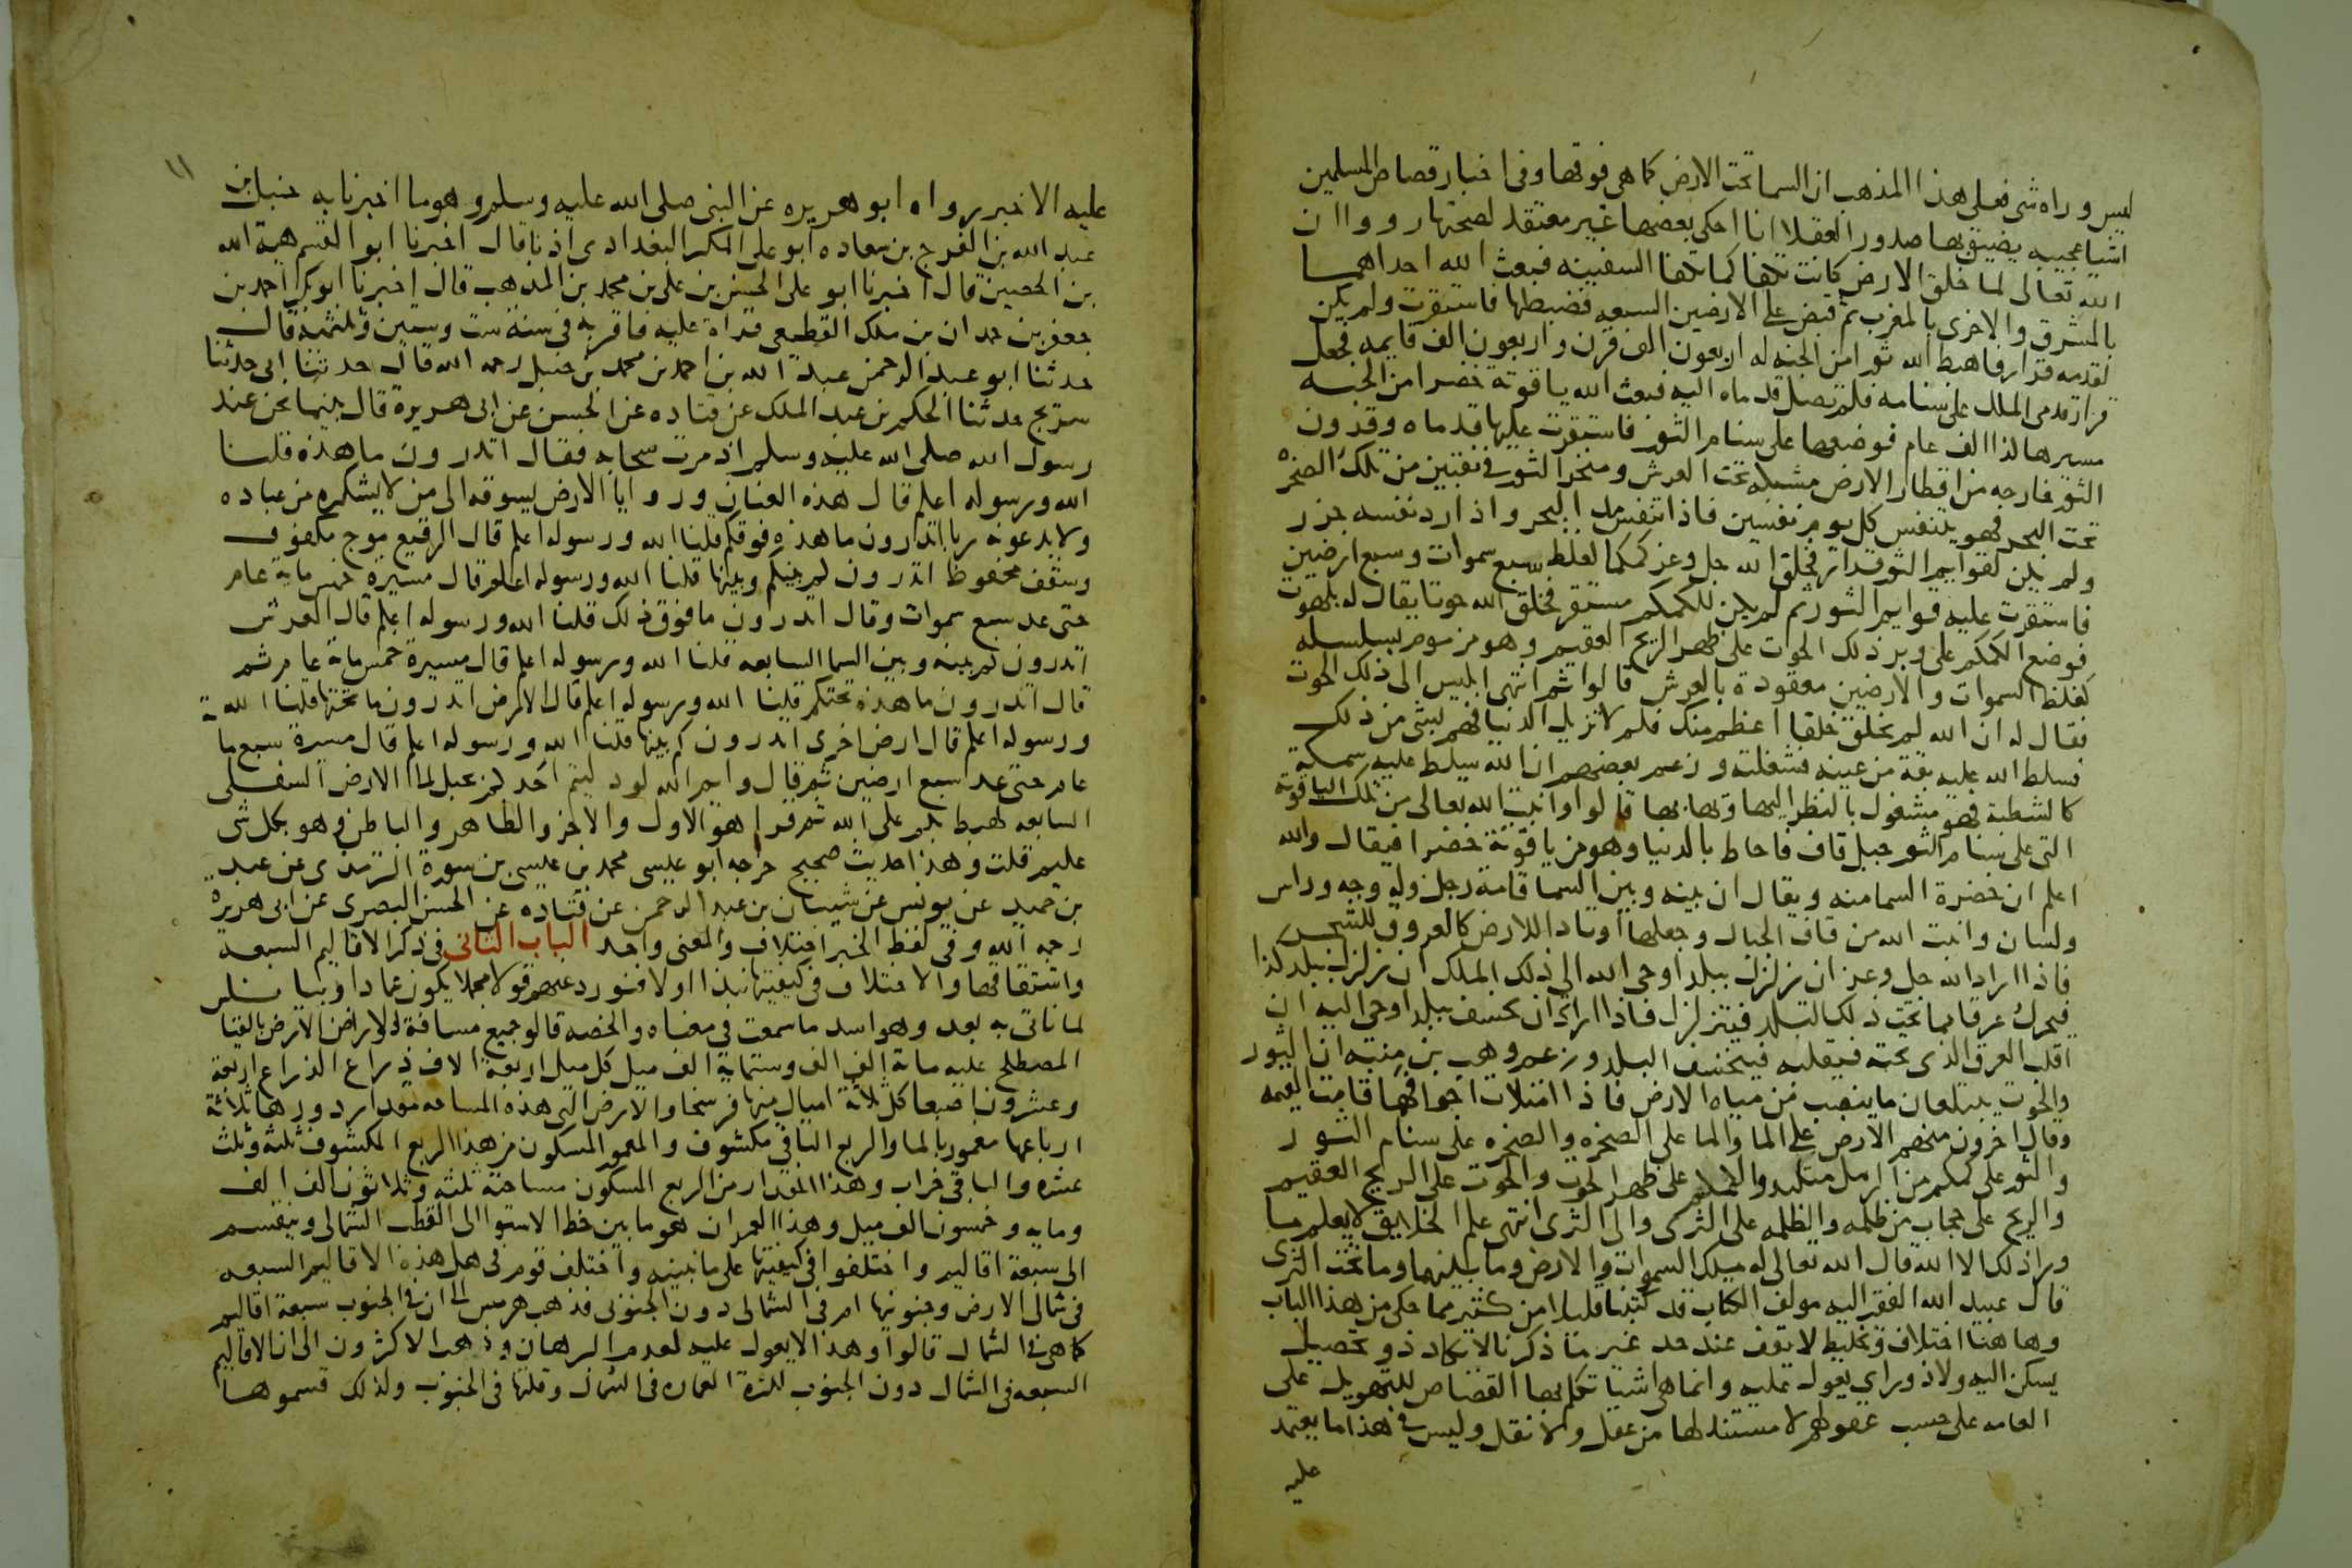 ليس وراه شى فعلى هذا المذهب ان السما تحت الارض كما هى فوقها وفى اخبار قصاص المسلمين
اشيا عجيبه يضيق بها صدور العقلا انا احكى بعضها غير معتقد لصحتها رووا ان
الله تعالى لما خلق الارض كانت تكفا كما تكفا السفينه فبعث الله احداهما
بالمشرق والاخرى بالمغرب ثم قبض على الارضين السبعه فضبطها فاستقرت ولم يكن
لقدميه قرار فاهبط الله ثورا من الجنه له اربعون الف قرن واربعون الف قايمه فجعل
قرار قدمى الملك على سنامه فلم تصل قدماه اليه فبعث الله ياقوتة خضرا من الجنه
مسيرها كذا الف عام فوضعها على سنام الثور فاستقرت عليها قدماه وقرون
الثور خارجه من اقطار الارض مشبكه تحت العرش ومنخر الثور فى نقبين من تلك الصخره
تحت البحر فهو يتنفس كل يوم نفسين فاذا تنفس مد البحر واذا رد نفسه جزر
ولم يكن لقوايم الثور قرار فخلق الله جل وعز كمكما لغلظ سبع سموات وسبع ارضين
فاستقرت عليه قوايم الثور ثم لم يكن للكمكم مستقر فخلق الله حوتا يقال له بلهوت
فوضع الكمكم على وبر ذلك الحوت على ظهر الريح العقيم وهو مزموم بسلسله
كغلظ السموات والارضين معقودة بالعرش قالوا ثم انتهى ابليس الى ذلك الحوت
فقال له ان الله لم يخلق خلقا اعظم منك فلم لا تزيل الدنيا فهم بشى من ذلك
فسلط الله عليه بقة من عينيه فشغلته وزعم بعضهم ان الله سلط عليه سمكة
كالشطبة فهو مشغول بالنظر اليها وبها بها قالوا وانبت الله تعالى من تلك الياقوتة
التى على سنام الثور جبل قاف فاحاط بالدنيا وهو من ياقوتة خضرا فيقال والله
اعلم ان خضرة السما منه ويقال ان بينه وبين السما قامة رجل وله وجه وراس
ولسان وانبت الله من قاف الجبال وجعلها اوتادا للارض كالعروق للشجر
فاذا اراد الله جل وعز ان يزلزل ببلد اوحى الله الى ذلك الملك ان زلزل ببلد كذا
فيحرك عرقا مما تحت ذلك البلد فيتزلزل فاذا اراد ان يخسف ببلد اوحى اليه ان
اقلب العرق الذى تحته فيقلبه فيخسف البلد وزعم وهب بن منبه ان الثور
والحوت يبتلعان ما ينصب من مياه الارض فاذا امتلات اجوافها قامت القيمه
وقال اخرون منهم الارض على الما والما على الصخره والصخره على سنام الثور
والثور على كمكم من الرمل متلبد والكمكم على ظهر الحوت والحوت على الريح العقيم
والريح على حجاب من ظلمه والظلمه على الثرى والى الثرى انتهى علم الخلايق لا يعلم ما
ورا ذلك الا الله قال الله تعالى له ملك السموات والارض وما بينهما وما تحت الثرى
قال عبيد الله الفقير اليه مولف الكتاب قد كتبنا قليلا من كثير مما حكى من هذا الباب
وهاهنا اختلاف وتخليط لا يقف عند حد غير ما ذكرنا لا يكاد ذو تحصيل
يسكن اليه ولا ذو راي يعول عليه وانما هى اشيا تكلم بها القصاص للتهويل على
العامه على حسب عقولهم لا مستند لها من عقل ولا نقل وليس فى هذا ما يعتمد
عليه
١١
عليه الا خبر رواه ابو هريره عن النبى صلى الله عليه وسلم وهو ما اخبرنا به حنبل بن
عبد الله بن الفرج بن سعاده ابو على المكبر البغدادى اذنا قال اخبرنا ابو القسم هبة الله
بن الحصين قال اخبرنا ابو على الحسن بن على بن محمد بن المذهب قال اخبرنا ابو بكر احمد بن
جعفر بن حمدان بن ملك القطيعى قراة عليه فاقر به فى سنة ست وستين وثلثمئة قال
حدثنا ابو عبد الرحمن عبد الله بن احمد بن محمد بن حنبل رحمه الله قال حدثنا ابى حدثنا
سريج حدثنا الحكم بن عبد الملك عن قتاده عن الحسن عن ابى هريرة قال بينما نحن عند
رسول الله صلى الله عليه وسلم اذ مرت سحابه فقال اتدرون ما هذه قلنا
الله ورسوله اعلم قال هذه العنان وروايا الارض يسوقه الى من لا يشكره من عباده
ولا يدعونه ربا اتدرون ما هذه فوقكم قلنا الله ورسوله اعلم قال الرقيع موج مكفوف
وسقف محفوظ اتدرون كم بينكم وبينها قلنا الله ورسوله اعلم قال مسيرة خمس ماية عام
حتى عد سبع سموات وقال اتدرون ما فوق ذلك قلنا الله ورسوله اعلم قال العرش
اتدرون كم بينه وبين السما السابعه قلنا الله ورسوله اعلم قال مسيرة خمس ماية عام ثم
قال اتدرون ما هذه تحتكم قلنا الله ورسوله اعلم قال الارض اتدرون ما تحتها قلنا الله
ورسوله اعلم قال ارض اخرى اتدرون كم بينها قلنا الله ورسوله اعلم قال مسيرة سبع ماية
عام حتى عد سبع ارضين ثم قال وايم الله لو دليتم احدكم بحبل الى الارض السفلى
السابعه لهبط بكم على الله ثم قرا هو الاول والاخر والظاهر والباطن وهو بكل شى
عليم قلت وهذا حديث صحيح خرجه ابو عيسى محمد بن عيسى بن سورة الترمذى عن عبد
بن حميد عن يونس عن شيبان بن عبد الرحمن عن قتاده عن الحسن البصرى عن ابى هريرة
رحمه الله وفى لفظ الخبر اختلاف والمعنى واحد الباب الثانى فى ذكر الاقاليم السبعه
واشتقاقها والاختلاف فى كيفيتها نبدا اولا فنورد عنهم قولا مجملا يكون عمادا وبيانا
لما ناتى به بعد وهو اسد ما سمعت فى معناه والخصه قالو جميع مسافة دور الارض بالقيا
المصطلح عليه ماية الف الف وستماية الف ميل كل ميل اربعة الاف ذراع الذراع اربعة
وعشرون اصبعا كل ثلاثة اميال منها فرسخا والارض التى هذه المسافه مقدار دورها ثلاثة
ارباعها مغمور بالما والربع الباقى مكشوف والمعمور المسكون من هذا الربع المكشوف ثلثه وثلث
عشره والباقى خراب وهذا المقدار من الربع المسكون مساحته ثلثه وثلاثون الف الف
ومايه وخمسون الف ميل وهذا العمران هو ما بين خط الاستوا الى القطب الشمالى وينقسم
الى سبعة اقاليم واختلفوا فى كيفيتها على ما نبينه واختلف قوم فى هل هذه الاقاليم السبعه
فى شمالى الارض وجنوبها ام فى الشمالى دون الجنوبى فذهب هرمس الى ان فى الجنوب سبعة اقاليم
كما هى فى الشمال قالوا وهذا لا يعول عليه لعدم البرهان وذهب الاكثرون الى ان الاقاليم
السبعه فى الشمال دون الجنوب لكثرة العماره فى الشمال وقلتها فى الجنوب ولذلك قسموها